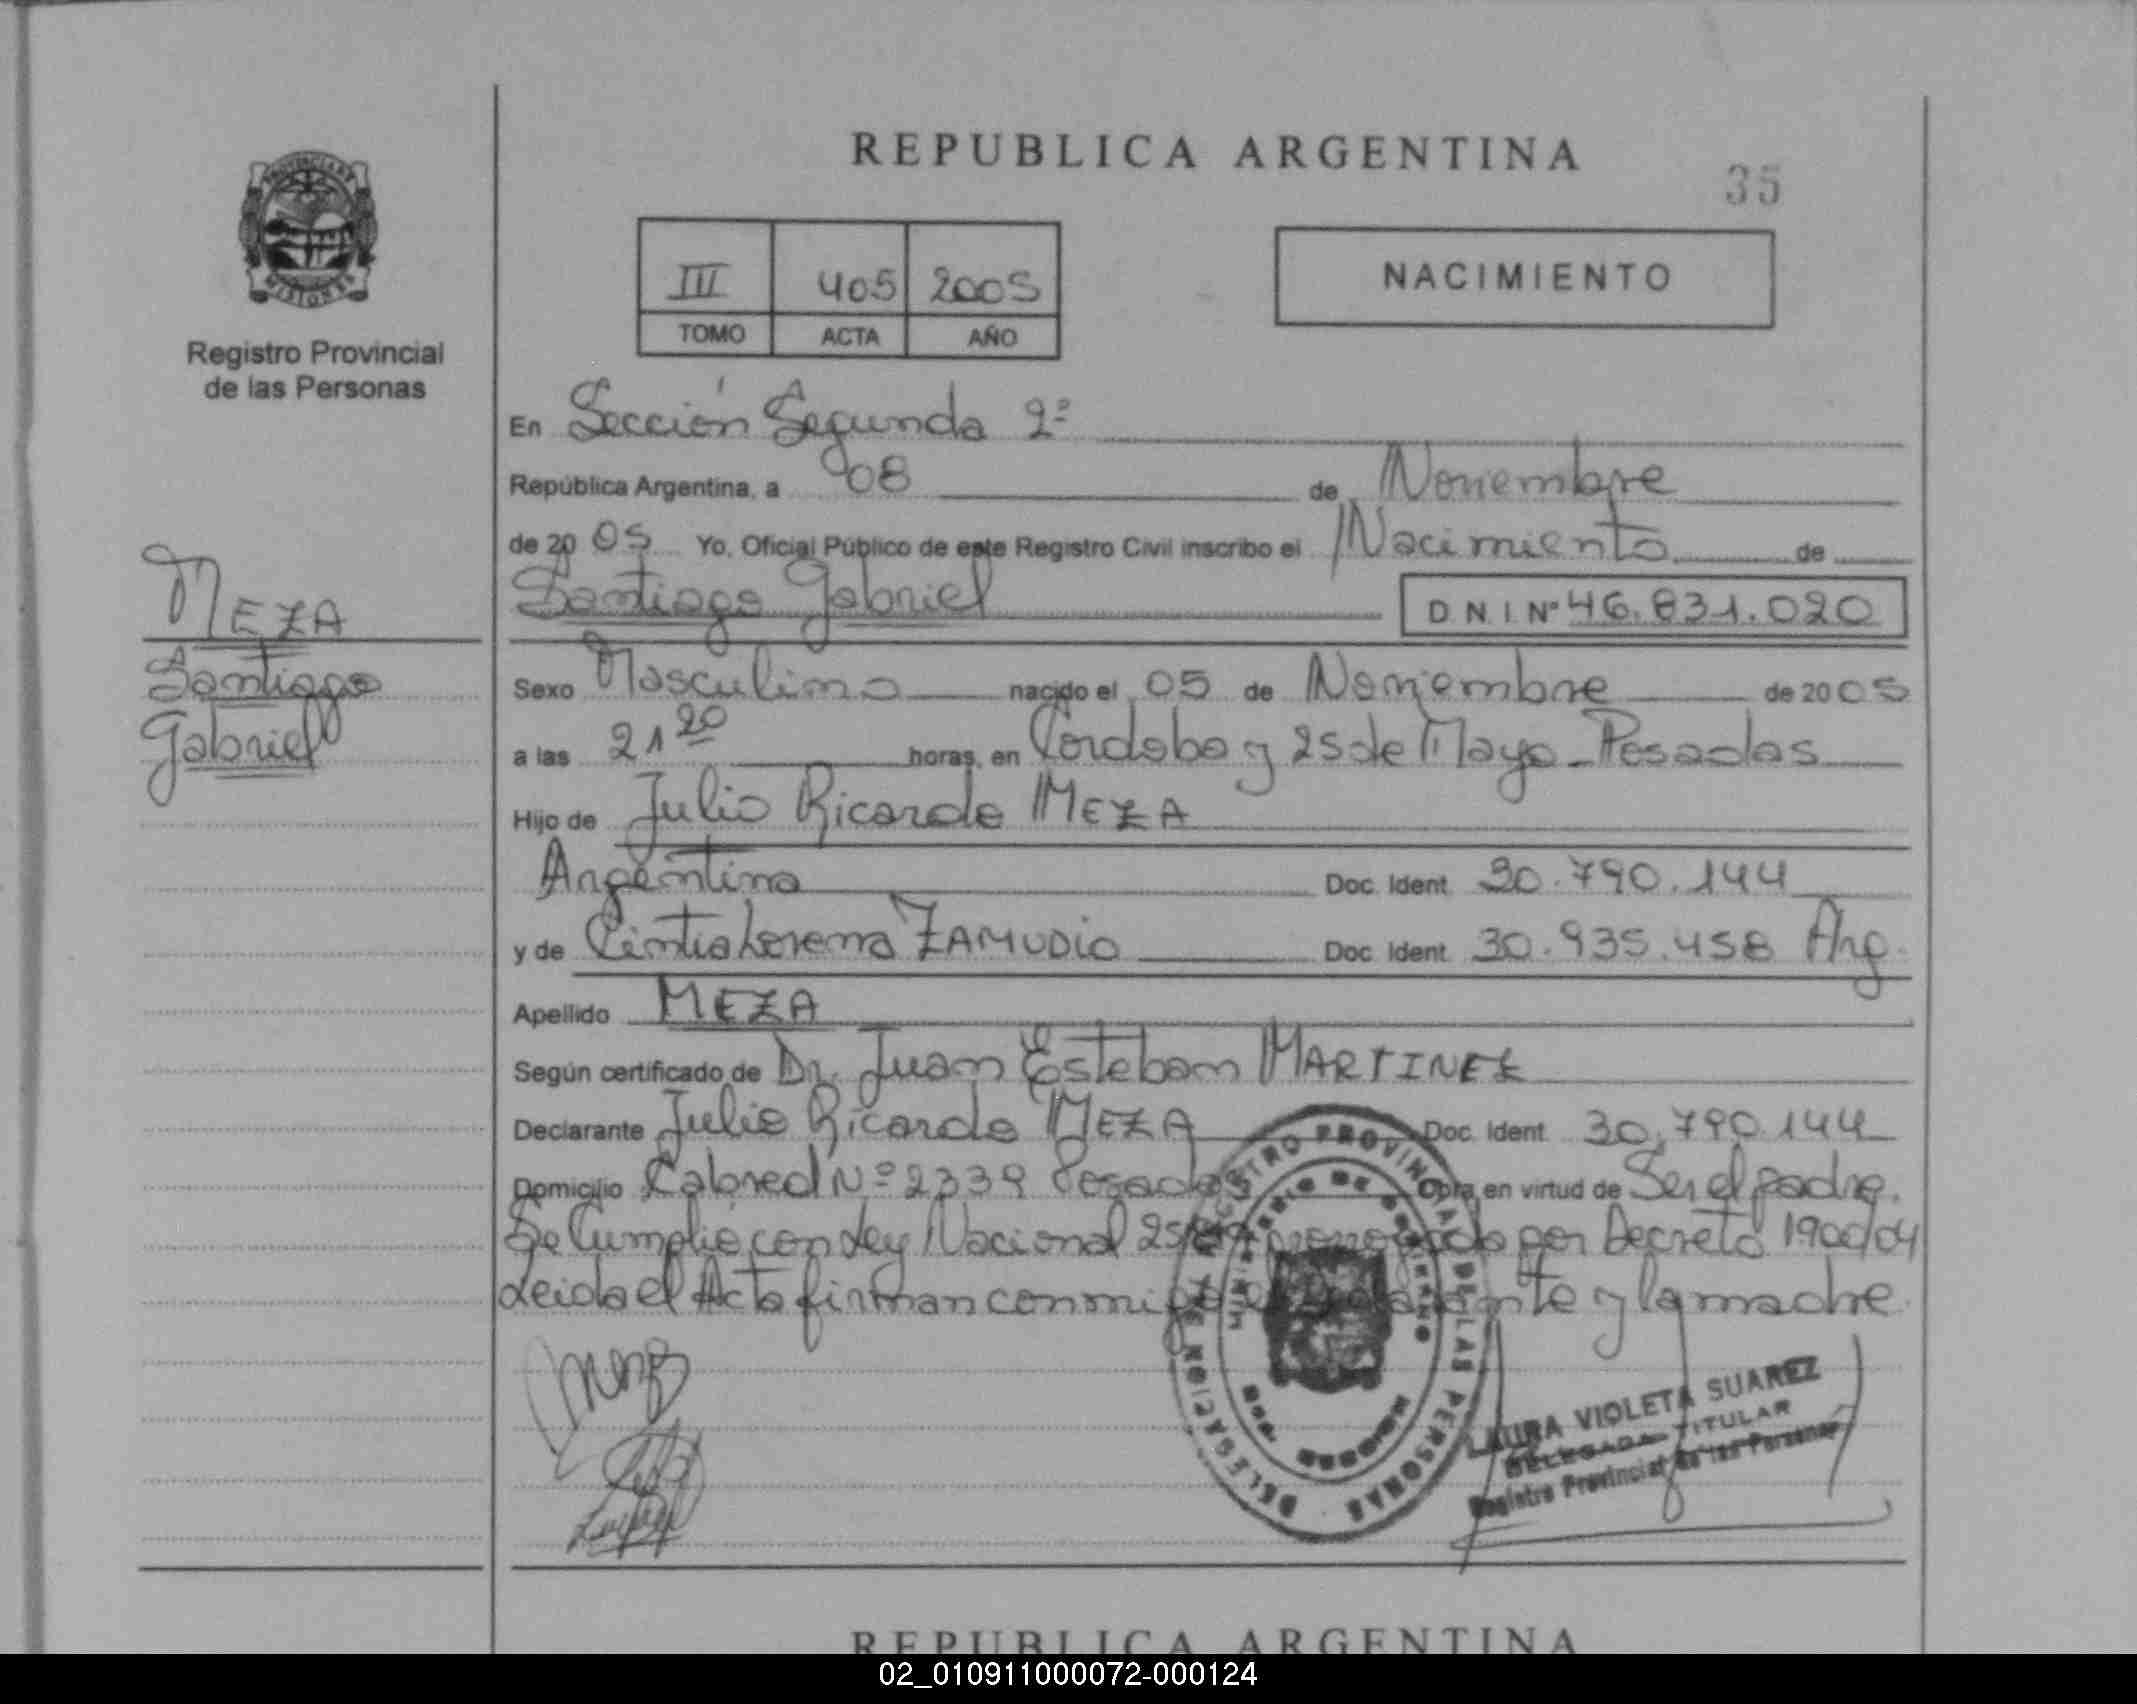 REPUBLICA ARGENTINA
35
PROVINCIA DE
MISIONES
Registro Provincial
de las Personas
III 405 2005
TOMO ACTA AÑO
NACIMIENTO
En Sección Segunda 2º
República Argentina, a 08 de Noviembre
de 2005 Yo, Oficial Público de este Registro Civil inscribo el Nacimiento de
Santiago Gabriel D.N.I. Nº 46.831.020
MEZA
Santiago
Gabriel
Sexo Masculino nacido el 05 de Noviembre de 2005
a las 21 20 horas, en Cordoba y 25 de Mayo - Posadas
Hijo de Julio Ricardo MEZA
Argentina Doc. Ident. 30.790.144
y de Cintia Lorena ZAMUDIO Doc. Ident. 30.935.458 Arg.
Apellido MEZA
Según certificado de Dr. Juan Esteban MARTINEZ
Declarante Julio Ricardo MEZA Doc. Ident. 30.790.144
Domicilio Cabred Nº 2339 Posadas Obra en virtud de Ser el padre.
Se Cumplió con Ley Nacional por Decreto 1900/04
Leida el Acta firman conmigo y la madre.
REGISTRO PROVINCIAL DE LAS PERSONAS
DELEGACION
LAURA VIOLETA SUAREZ
DELEGADA TITULAR
Registro Provincial de las Personas
REPUBLICA ARGENTINA
02_010911000072-000124